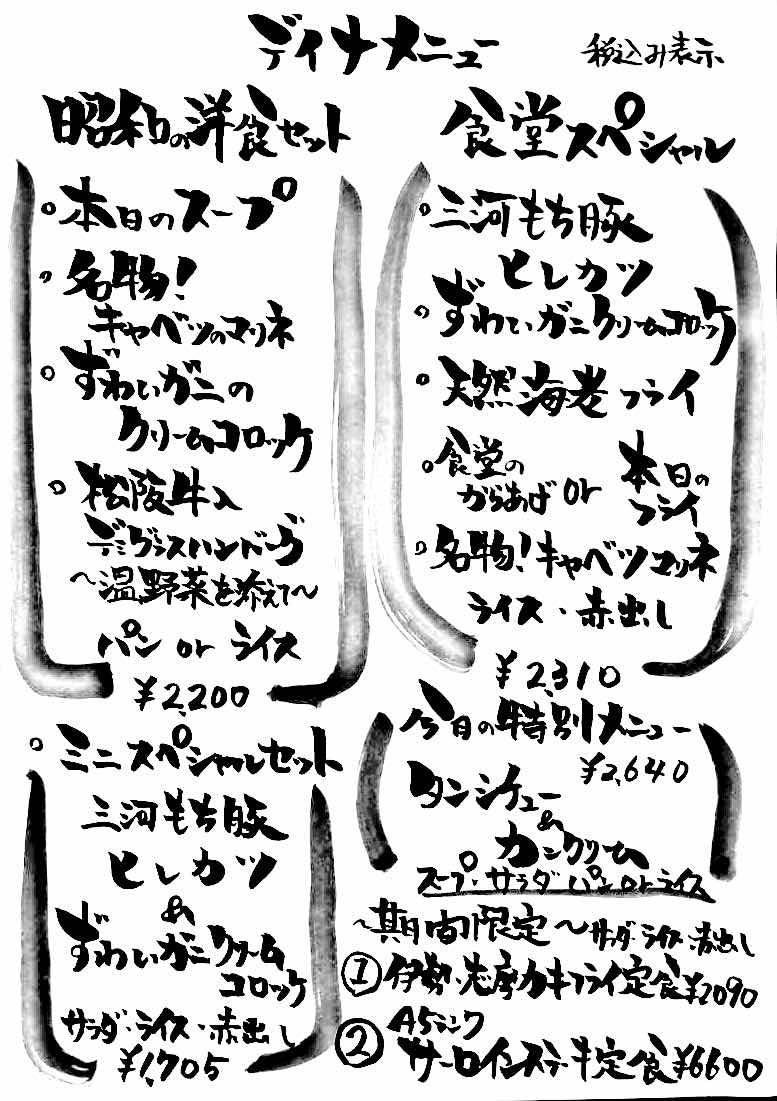 ディナメニュー
税込み表示
昭和の洋食セット
本日のスープ
名物！
キャベツのマリネ
ずわいガニの
クリームコロッケ
松阪牛入
デミグラスハンバーグ
〜温野菜を添えて〜
パン or ライス
¥2,200
食堂スペシャル
三河もち豚
ヒレカツ
ずわいガニクリームコロッケ
天然海老フライ
食堂の
からあげ or 本日の
フライ
名物！キャベツマリネ
ライス・赤出し
¥2,310
ミニスペシャルセット
三河もち豚
ヒレカツ
&
ずわいガニクリーム
コロッケ
サラダ・ライス・赤出し
¥1,705
今日の特別メニュー
¥2,640
タンシチュー
&
カニクリーム
スープ・サラダ パン or ライス
〜期間限定〜 サラダ・ライス・赤出し
① 伊勢・志摩カキフライ定食 ¥2090
A5ランク
② サーロインステーキ定食 ¥6600